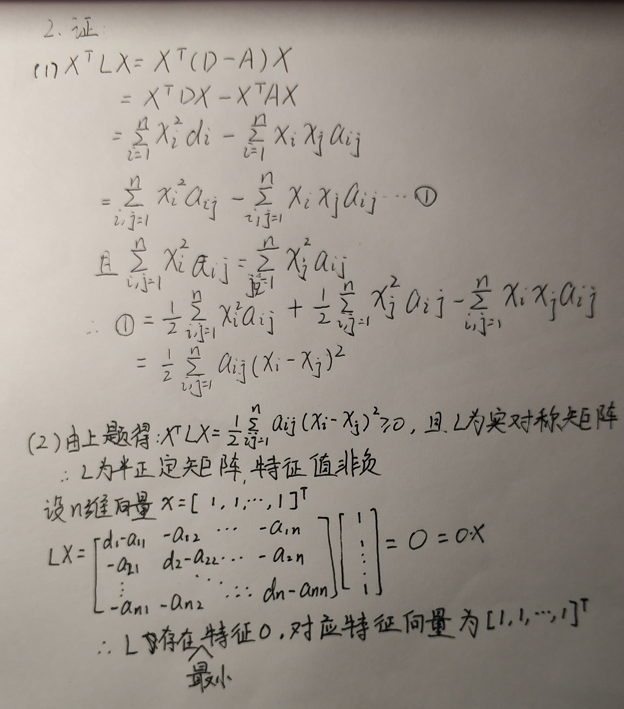 2. 证
(1) XᵀLX = Xᵀ(D-A)X
= XᵀDX - XᵀAX
= \sum_{i=1}^{n} x_i^2 d_i - \sum_{i=1}^{n} x_i x_j a_{ij}
= \sum_{i,j=1}^{n} x_i^2 a_{ij} - \sum_{i,j=1}^{n} x_i x_j a_{ij} … ①
且 \sum_{i,j=1}^{n} x_i^2 a_{ij} = \sum_{j=1}^{n} x_j^2 a_{ij}
∴ ① = \frac{1}{2} \sum_{i,j=1}^{n} x_i^2 a_{ij} + \frac{1}{2} \sum_{i,j=1}^{n} x_j^2 a_{ij} - \sum_{i,j=1}^{n} x_i x_j a_{ij}
= \frac{1}{2} \sum_{i,j=1}^{n} a_{ij} (x_i - x_j)^2
(2) 由上题得: XᵀLX = \frac{1}{2} \sum_{i,j=1}^{n} a_{ij} (x_i - x_j)^2 ≥ 0, 且 L为实对称矩阵
∴ L为半正定矩阵, 特征值非负
设n维向量 X = [1, 1, …, 1]ᵀ
LX = \begin{bmatrix} d_1-a_{11} & -a_{12} & \cdots & -a_{1n} \\ -a_{21} & d_2-a_{22} & \cdots & -a_{2n} \\ \vdots & & \ddots & \vdots \\ -a_{n1} & -a_{n2} & \cdots & d_n-a_{nn} \end{bmatrix} \begin{bmatrix} 1 \\ 1 \\ \vdots \\ 1 \end{bmatrix} = 0 = 0·X
∴ L存在最小特征0, 对应特征向量为 [1, 1, …, 1]ᵀ